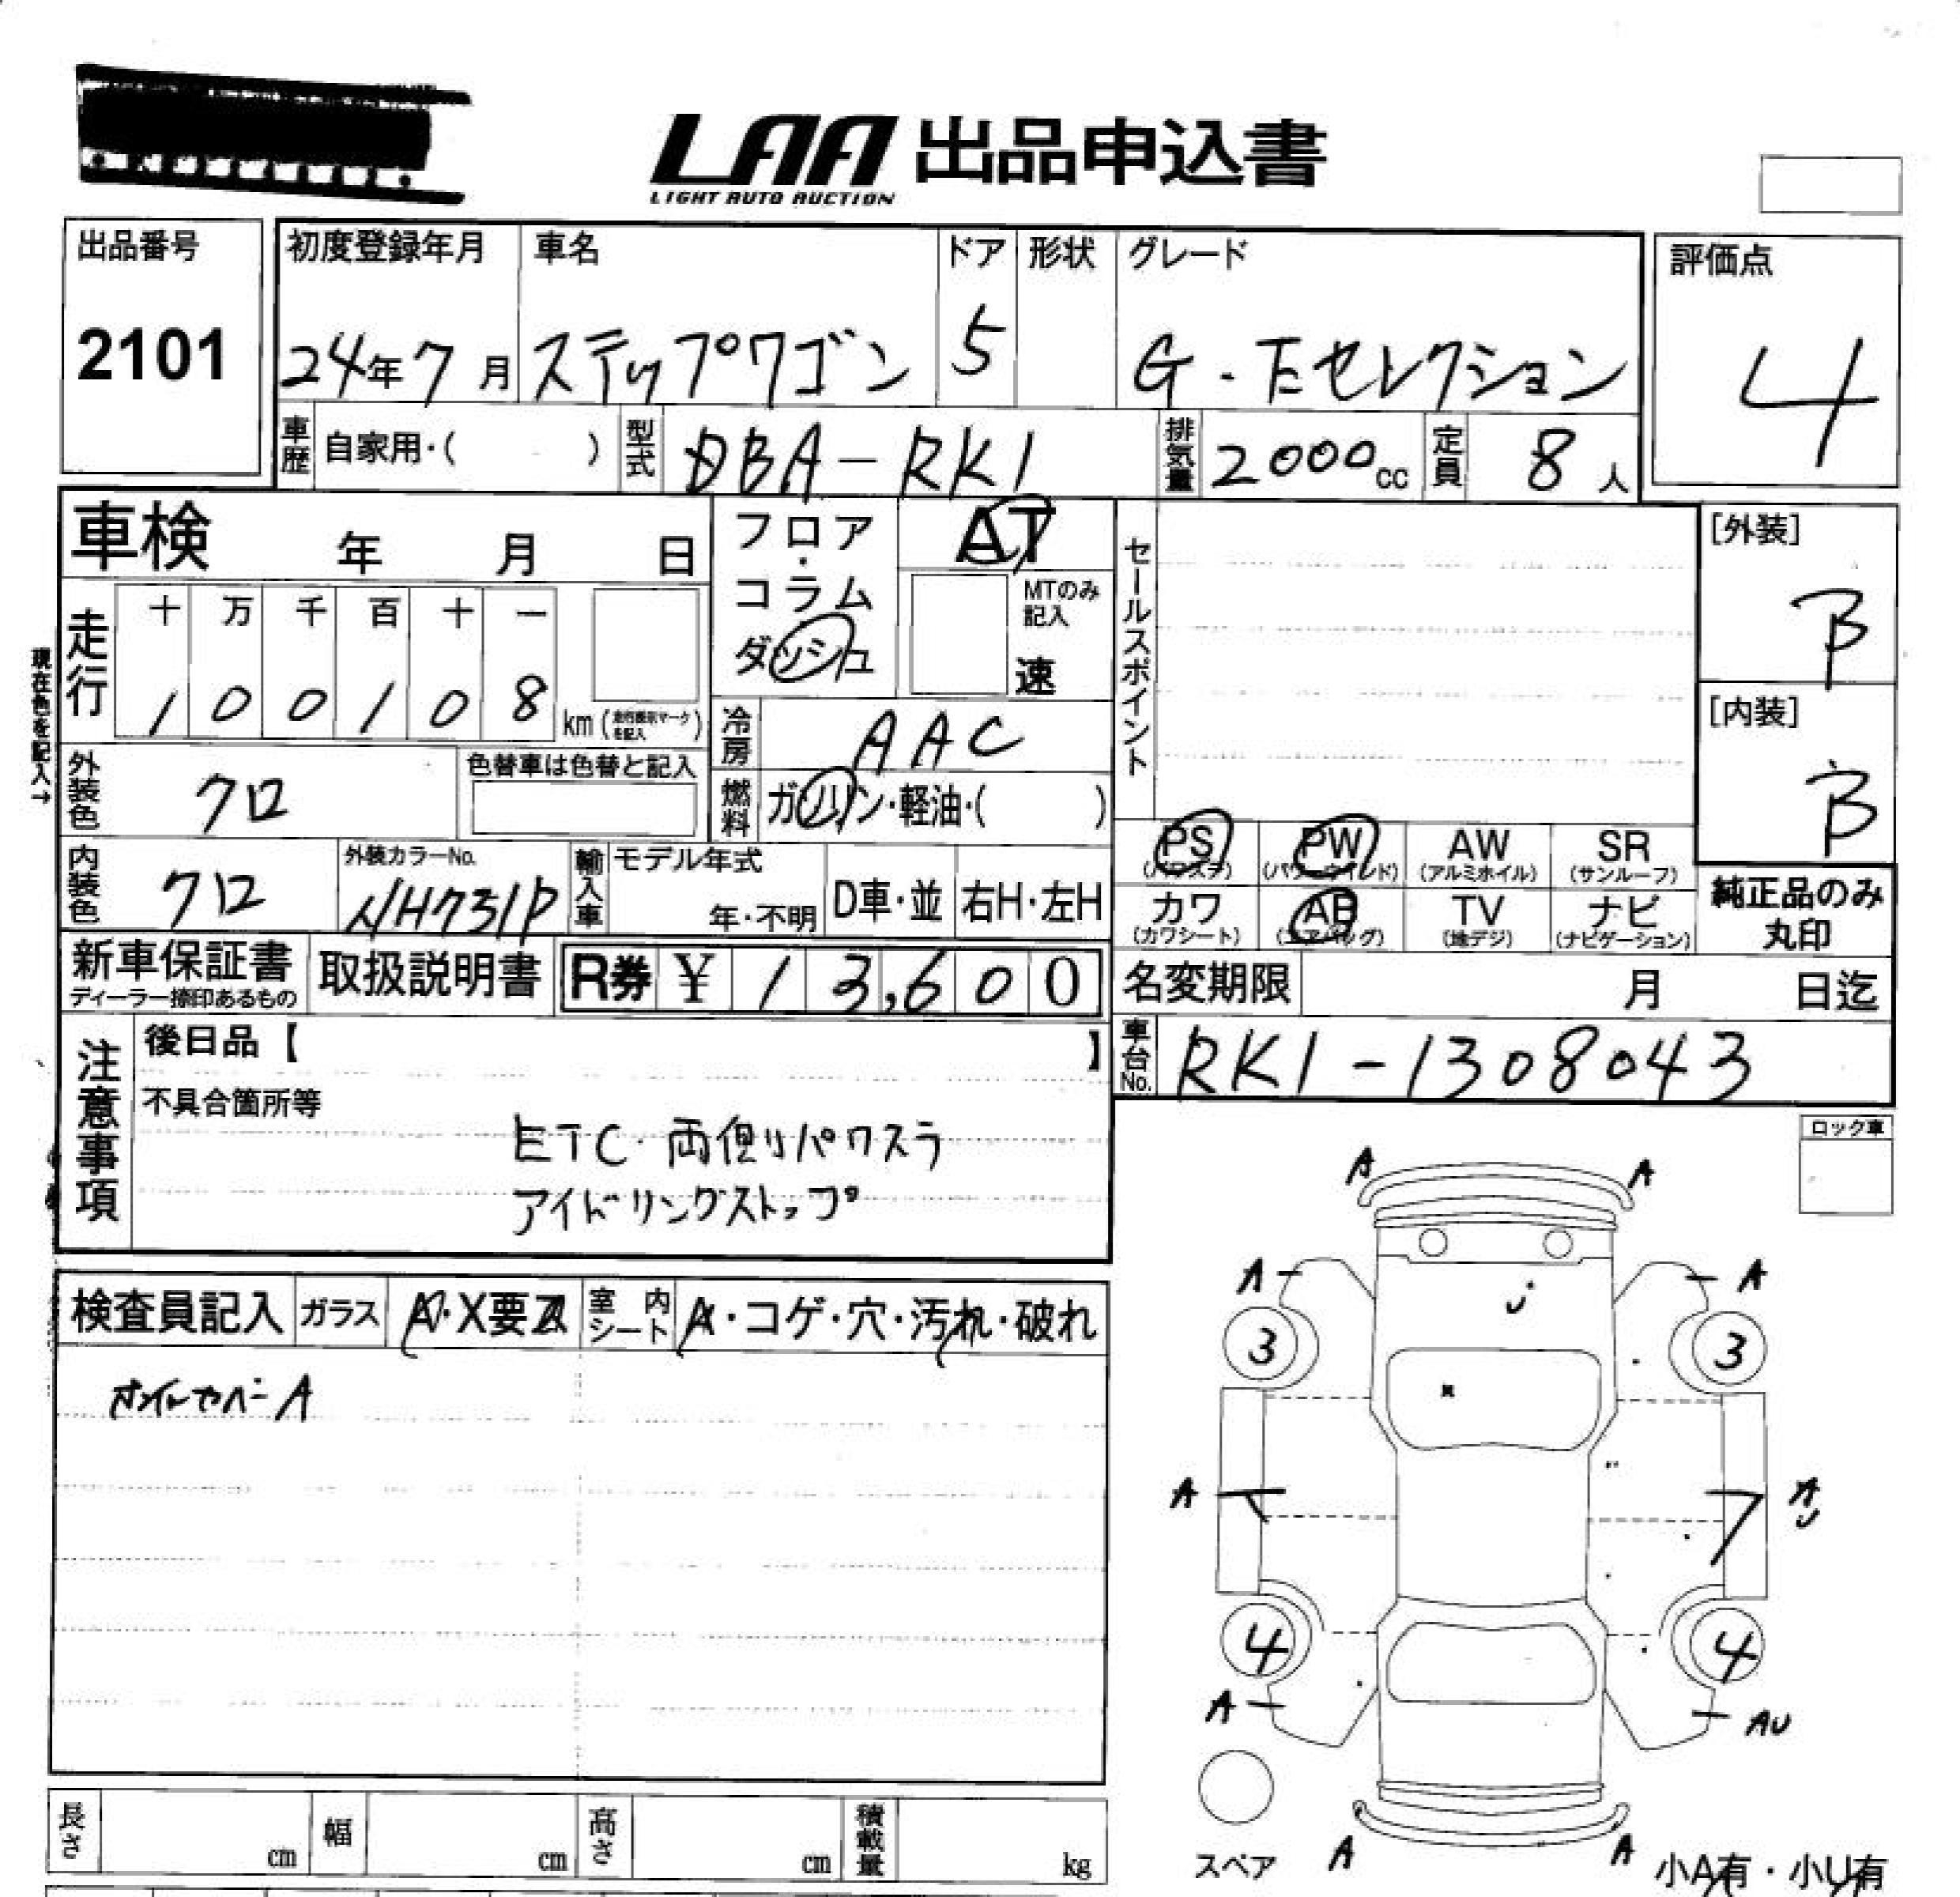 LAA 出品申込書
LIGHT AUTO AUCTION
出品番号
2101
初度登録年月 車名 ドア 形状 グレード
24年7月 ステップワゴン 5 G・Eセレクション
評価点
4
車歴 自家用・( ) 型式 DBA-RK1 排気量 2000cc 定員 8人
車検 年 月 日
フロア・コラム ダッシュ
AT
MTのみ記入
速
セールスポイント
[外装]
B
[内装]
B
現在色を記入→
走行 十 万 千 百 十 一
1 0 0 1 0 8 km (走行表示マークを記入)
冷房 AAC
外装色 クロ 色替車は色替と記入
燃料 ガソリン・軽油・( )
内装色 クロ 外装カラーNo. NH731P 輸入車 モデル年式 年・不明 D車・並 右H・左H
PS (パワステ) PW (パワーウインド) AW (アルミホイル) SR (サンルーフ)
カワ (カワシート) AB (エアバッグ) TV (地デジ) ナビ (ナビゲーション)
純正品のみ
丸印
新車保証書 取扱説明書 R券 ¥ 13,600
ディーラー捺印あるもの
名変期限 月 日迄
車台No. RK1-1308043
注意事項
後日品【 】
不具合箇所等
ETC・両側リパワスラ
アイドリングストップ
ロック車
検査員記入 ガラス A・X要 室内シート A・コゲ・穴・汚れ・破れ
オイルカバーA
A A
A A
U
3 3
A A
U
4 4
A AU
スペア
A A
小A有・小U有
長さ cm 幅 cm 高さ cm 積載量 kg